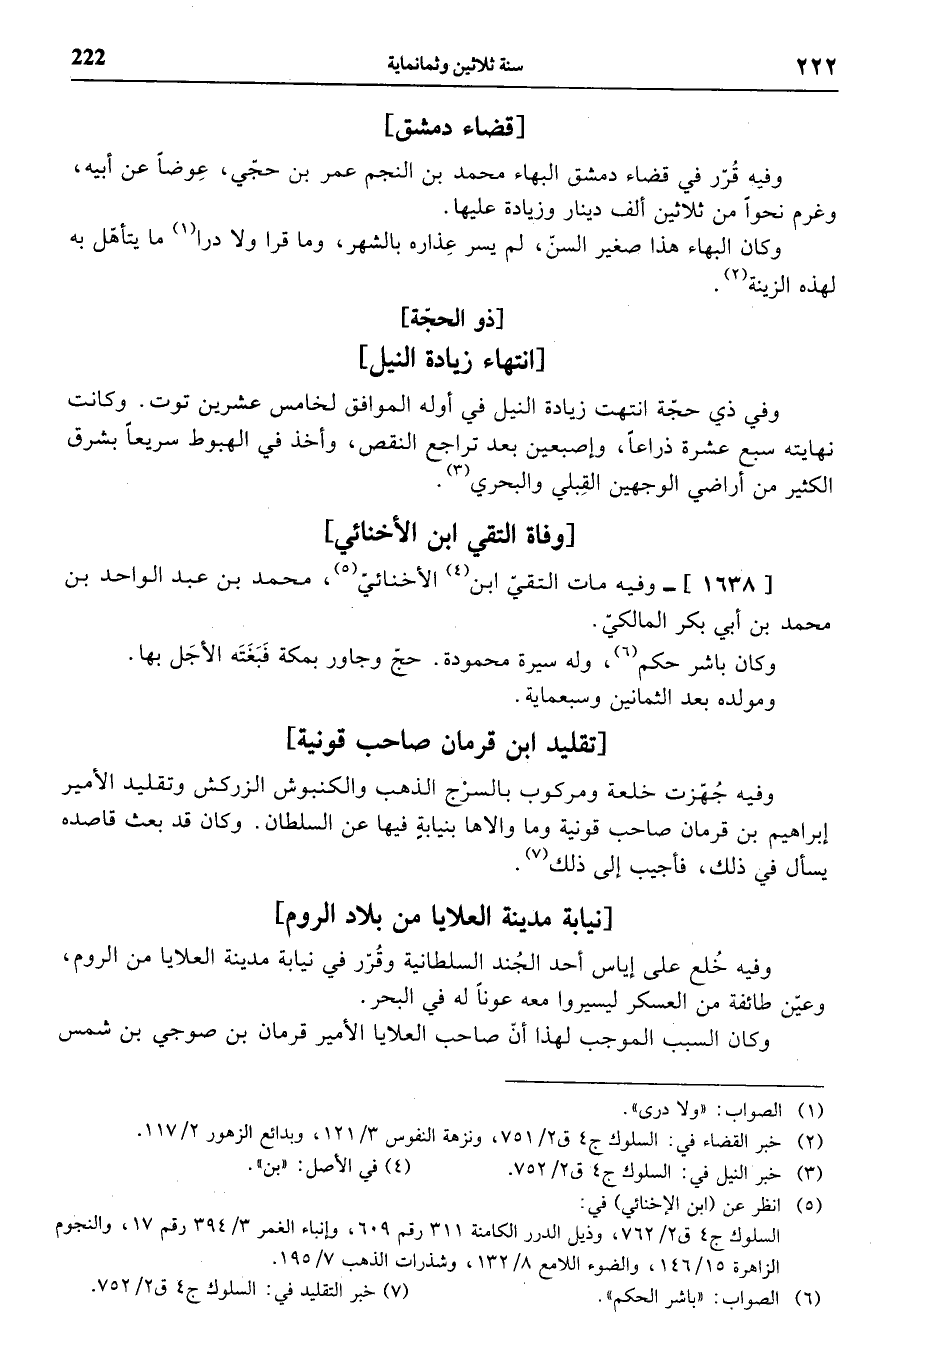 ٢٢٢ سنة ثلاثين وثمانماية 222
[قضاء دمشق]
وفيه قُرّر في قضاء دمشق البهاء محمد بن النجم عمر بن حجّي، عِوضاً عن أبيه،
وغرم نحواً من ثلاثين ألف دينار وزيادة عليها.
وكان البهاء هذا صغير السنّ، لم يسر عِذاره بالشهر، وما قرا ولا درا(١) ما يتأهّل به
لهذه الزينة(٢).
[ذو الحجّة]
[انتهاء زيادة النيل]
وفي ذي حجّة انتهت زيادة النيل في أوله الموافق لخامس عشرين توت. وكانت
نهايته سبع عشرة ذراعاً، وإصبعين بعد تراجع النقص، وأخذ في الهبوط سريعاً بشرق
الكثير من أراضي الوجهين القِبلي والبحري(٣).
[وفاة التقي ابن الأخنائي]
[ ١٦٣٨ ] ـ وفيه مات التقيّ ابن(٤) الأخنائيّ(٥)، محمد بن عبد الواحد بن
محمد بن أبي بكر المالكيّ.
وكان باشر حكم(٦)، وله سيرة محمودة. حجّ وجاور بمكة فَبَغَتَه الأجَل بها.
ومولده بعد الثمانين وسبعماية.
[تقليد ابن قرمان صاحب قونية]
وفيه جُهّزت خلعة ومركوب بالسرْج الذهب والكنبوش الزركش وتقليد الأمير
إبراهيم بن قرمان صاحب قونية وما والاها بنيابةٍ فيها عن السلطان. وكان قد بعث قاصده
يسأل في ذلك، فأجيب إلى ذلك(٧).
[نيابة مدينة العلايا من بلاد الروم]
وفيه خُلع على إياس أحد الجُند السلطانية وقُرّر في نيابة مدينة العلايا من الروم،
وعيّن طائفة من العسكر ليسيروا معه عوناً له في البحر.
وكان السبب الموجب لهذا أنّ صاحب العلايا الأمير قرمان بن صوجي بن شمس
(١) الصواب: «ولا درى».
(٢) خبر القضاء في: السلوك ج٤ ق٢/ ٧٥١، ونزهة النفوس ٣/ ١٢١، وبدائع الزهور ٢/ ١١٧.
(٣) خبر النيل في: السلوك ج٤ ق٢/ ٧٥٢. (٤) في الأصل: «بن».
(٥) انظر عن (ابن الإخنائي) في:
السلوك ج٤ ق٢/ ٧٦٢، وذيل الدرر الكامنة ٣١١ رقم ٦٠٩، وإنباء الغمر ٣/ ٣٩٤ رقم ١٧، والنجوم
الزاهرة ١٥/ ١٤٦، والضوء اللامع ٨/ ١٣٢، وشذرات الذهب ٧/ ١٩٥.
(٦) الصواب: «باشر الحكم». (٧) خبر التقليد في: السلوك ج٤ ق٢/ ٧٥٢.